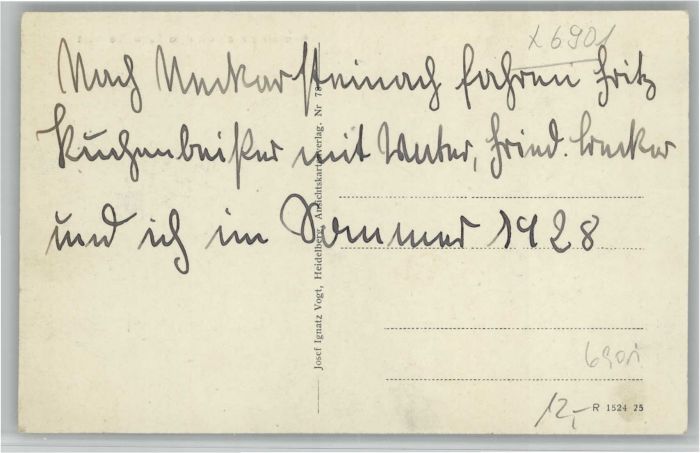 x 6901
Nach Neckarsteinach fahren Fritz
Kuchenbeißer mit Vater, Fried.
und ich im Sommer 1928
Josef Ignatz Vogt, Heidelberg, Ansichtskartenverlag. Nr 78
6901
12,-
R 1524 25